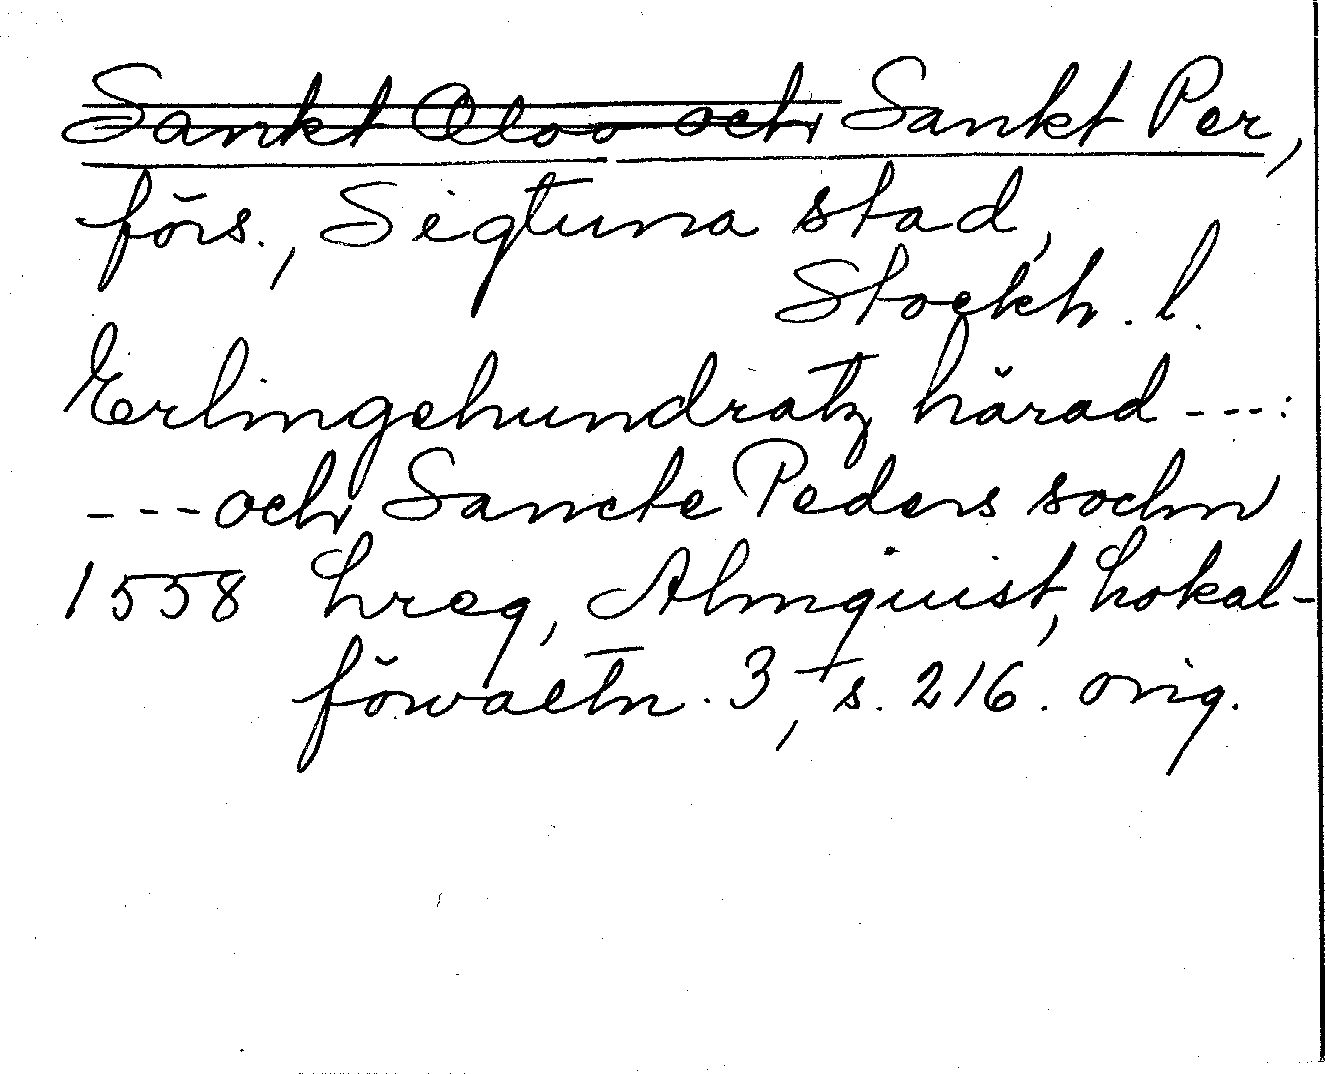 Sankt Olov och Sankt Per,
förs., Sigtuna stad,
Stockh. l.
Erlingehundratz härad ---:
--- och Sancte Peders sochn
1558 hreg, Almquist, Lokal-
förvaltn. 3, s. 216. orig.